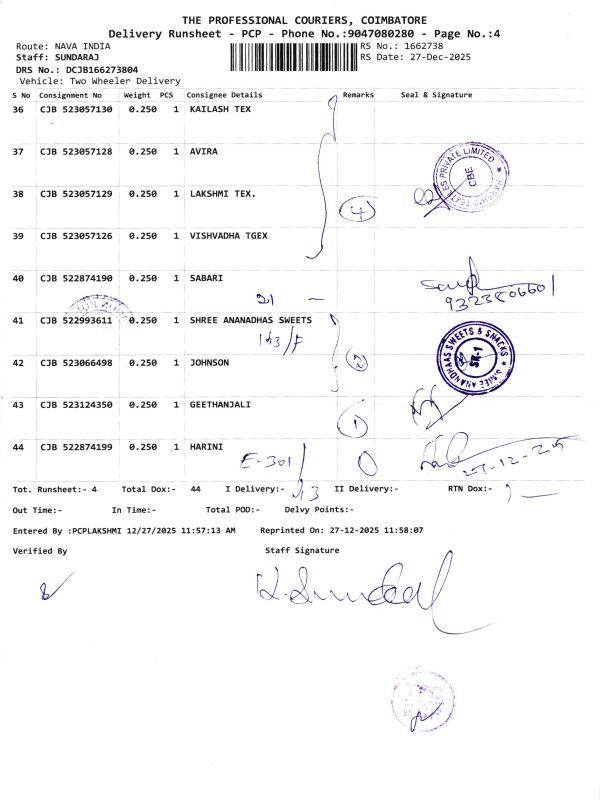 THE PROFESSIONAL COURIERS, COIMBATORE
Delivery Runsheet - PCP - Phone No.:9047080280 - Page No.:4
Route: NAVA INDIA
RS No.: 1662738
Staff: SUNDARAJ
RS Date: 27-Dec-2025
DRS No.: DCJB166273804
Vehicle: Two Wheeler Delivery
S No Consignment No Weight PCS Consignee Details Remarks Seal & Signature
36 CJB 523057130 0.250 1 KAILASH TEX
37 CJB 523057128 0.250 1 AVIRA
TEXTILES PRIVATE LIMITED
CBE
38 CJB 523057129 0.250 1 LAKSHMI TEX.
4
39 CJB 523057126 0.250 1 VISHVADHA TGEX
40 CJB 522874190 0.250 1 SABARI
21 -
41 CJB 522993611 0.250 1 SHREE ANANADHAS SWEETS
SHREE ANANDHAAS SWEETS & SNACKS
SK-1
2
42 CJB 523066498 0.250 1 JOHNSON
43 CJB 523124350 0.250 1 GEETHANJALI
1
44 CJB 522874199 0.250 1 HARINI
E-301
27-12-25
Tot. Runsheet:- 4 Total Dox:- 44 I Delivery:- II Delivery:- RTN Dox:-
Out Time:- In Time:- Total POD:- Delvy Points:-
Entered By :PCPLAKSHMI 12/27/2025 11:57:13 AM Reprinted On: 27-12-2025 11:58:07
Verified By Staff Signature